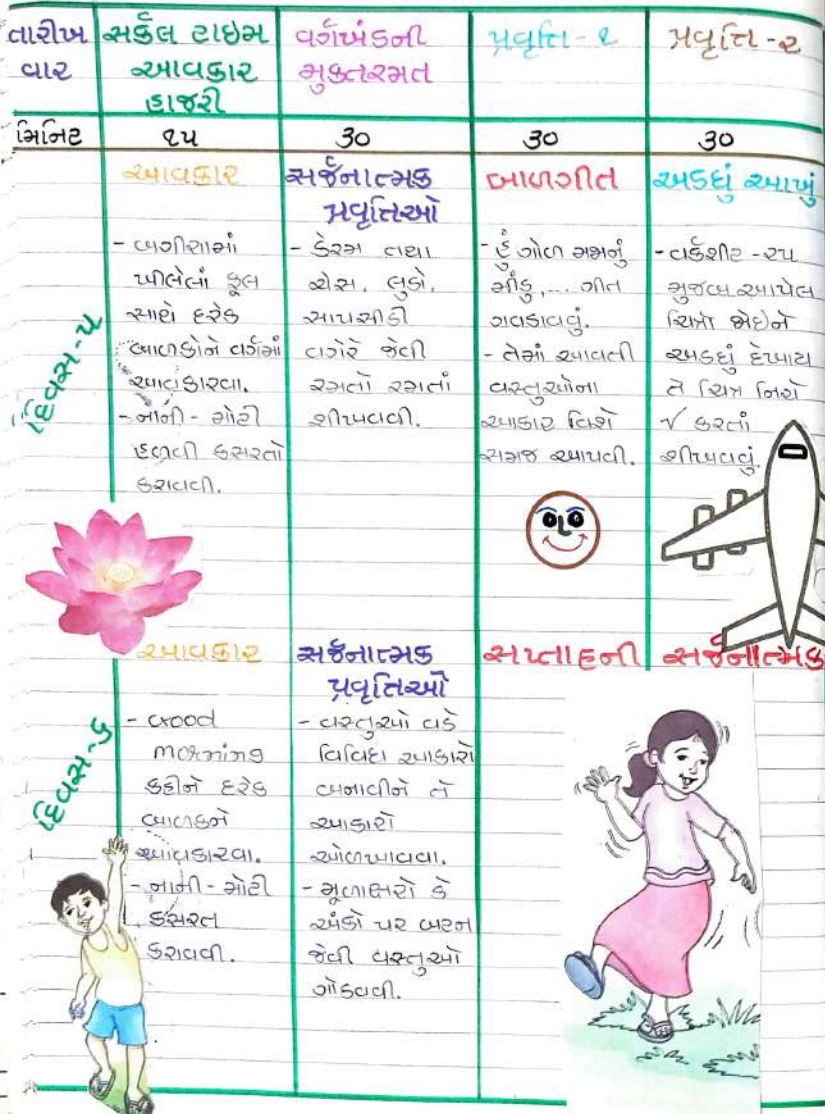 તારીખ વાર
સર્કલ ટાઇમ આવકાર હાજરી
વર્ગખંડની મુક્તરમત
પ્રવૃત્તિ - ૧
પ્રવૃત્તિ - ૨
મિનિટ
૧૫
૩૦
૩૦
૩૦
દિવસ-૫
આવકાર
- બગીચામાં
ખીલેલાં ફૂલ
સાથે દરેક
બાળકોને વર્ગમાં
આવકારવા.
- નાની - મોટી
હળવી કસરતો
કરાવવી.
સર્જનાત્મક
પ્રવૃત્તિઓ
- કેરમ તથા
ચેસ, લુડો,
સાપસીડી
વગેરે જેવી
રમતો રમતાં
શીખવવી.
બાળગીત
- હું ગોળ ગમનું
મીંડુ,... ગીત
ગવડાવવું.
- તેમાં આવતી
વસ્તુઓના
આકાર વિશે
સમજ આપવી.
અડધું આખું
- વર્કશીટ - ૨૫
મુજબ આપેલ
ચિત્રો જોઇને
અડધું દેખાય
તે ચિત્ર નિચે
√ કરતાં
શીખવવું.
દિવસ-૬
આવકાર
- Good
morning
કહીને દરેક
બાળકને
આવકારવા.
- નાની - મોટી
કસરત
કરાવવી.
સર્જનાત્મક
પ્રવૃત્તિઓ
- વસ્તુઓ વડે
વિવિધ આકારો
બનાવીને તે
આકારો
ઓળખાવવા.
- મૂળાક્ષરો કે
અંકો પર બટન
જેવી વસ્તુઓ
ગોઠવવી.
સપ્તાહની સર્જનાત્મક